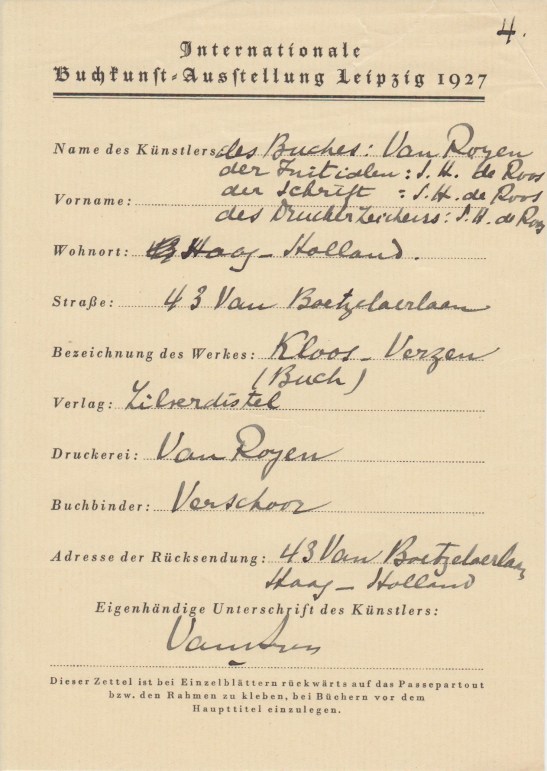 4.
Internationale
Buchkunst-Ausstellung Leipzig 1927
Name des Künstlers: des Buches: Van Royen
der Initialen: S. H. de Roos
der Schrift = S. H. de Roos
Vorname:
des Druckerzeichens: S. H. de Roos
Wohnort: Haag - Holland.
Straße: 43 Van Boetzelaerlaan
Bezeichnung des Werkes: Kloos - Verzen
(Buch)
Verlag: Zilverdistel
Druckerei: Van Royen
Buchbinder: Verschoor
Adresse der Rücksendung: 43 Van Boetzelaerlaan
Haag - Holland
Eigenhändige Unterschrift des Künstlers:
Dieser Zettel ist bei Einzelblättern rückwärts auf das Passepartout
bzw. den Rahmen zu kleben, bei Büchern vor dem
Haupttitel einzulegen.